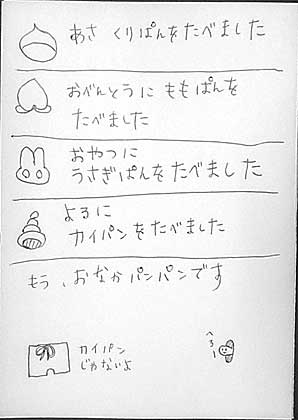 あさ くりぱんをたべました
おべんとうに ももぱんを
たべました
おやつに
うさぎぱんをたべました
よるに
カイパンをたべました
もう、おなかパンパンです
カイパン
じゃないよ